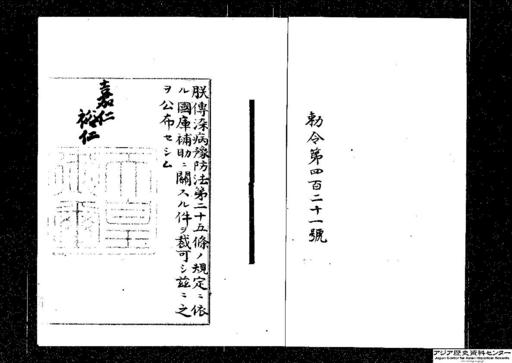 勅令第四百二十一號
朕傳染病豫防法第二十五條ノ規定ニ依
ル國庫補助ニ關スル件ヲ裁可シ茲ニ之
ヲ公布セシム
嘉仁
裕仁
アジア歴史資料センター
Japan Center for Asian Historical Records